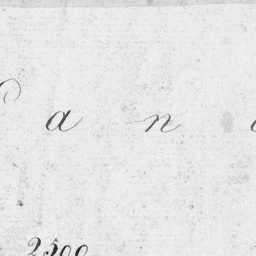 a n
2500